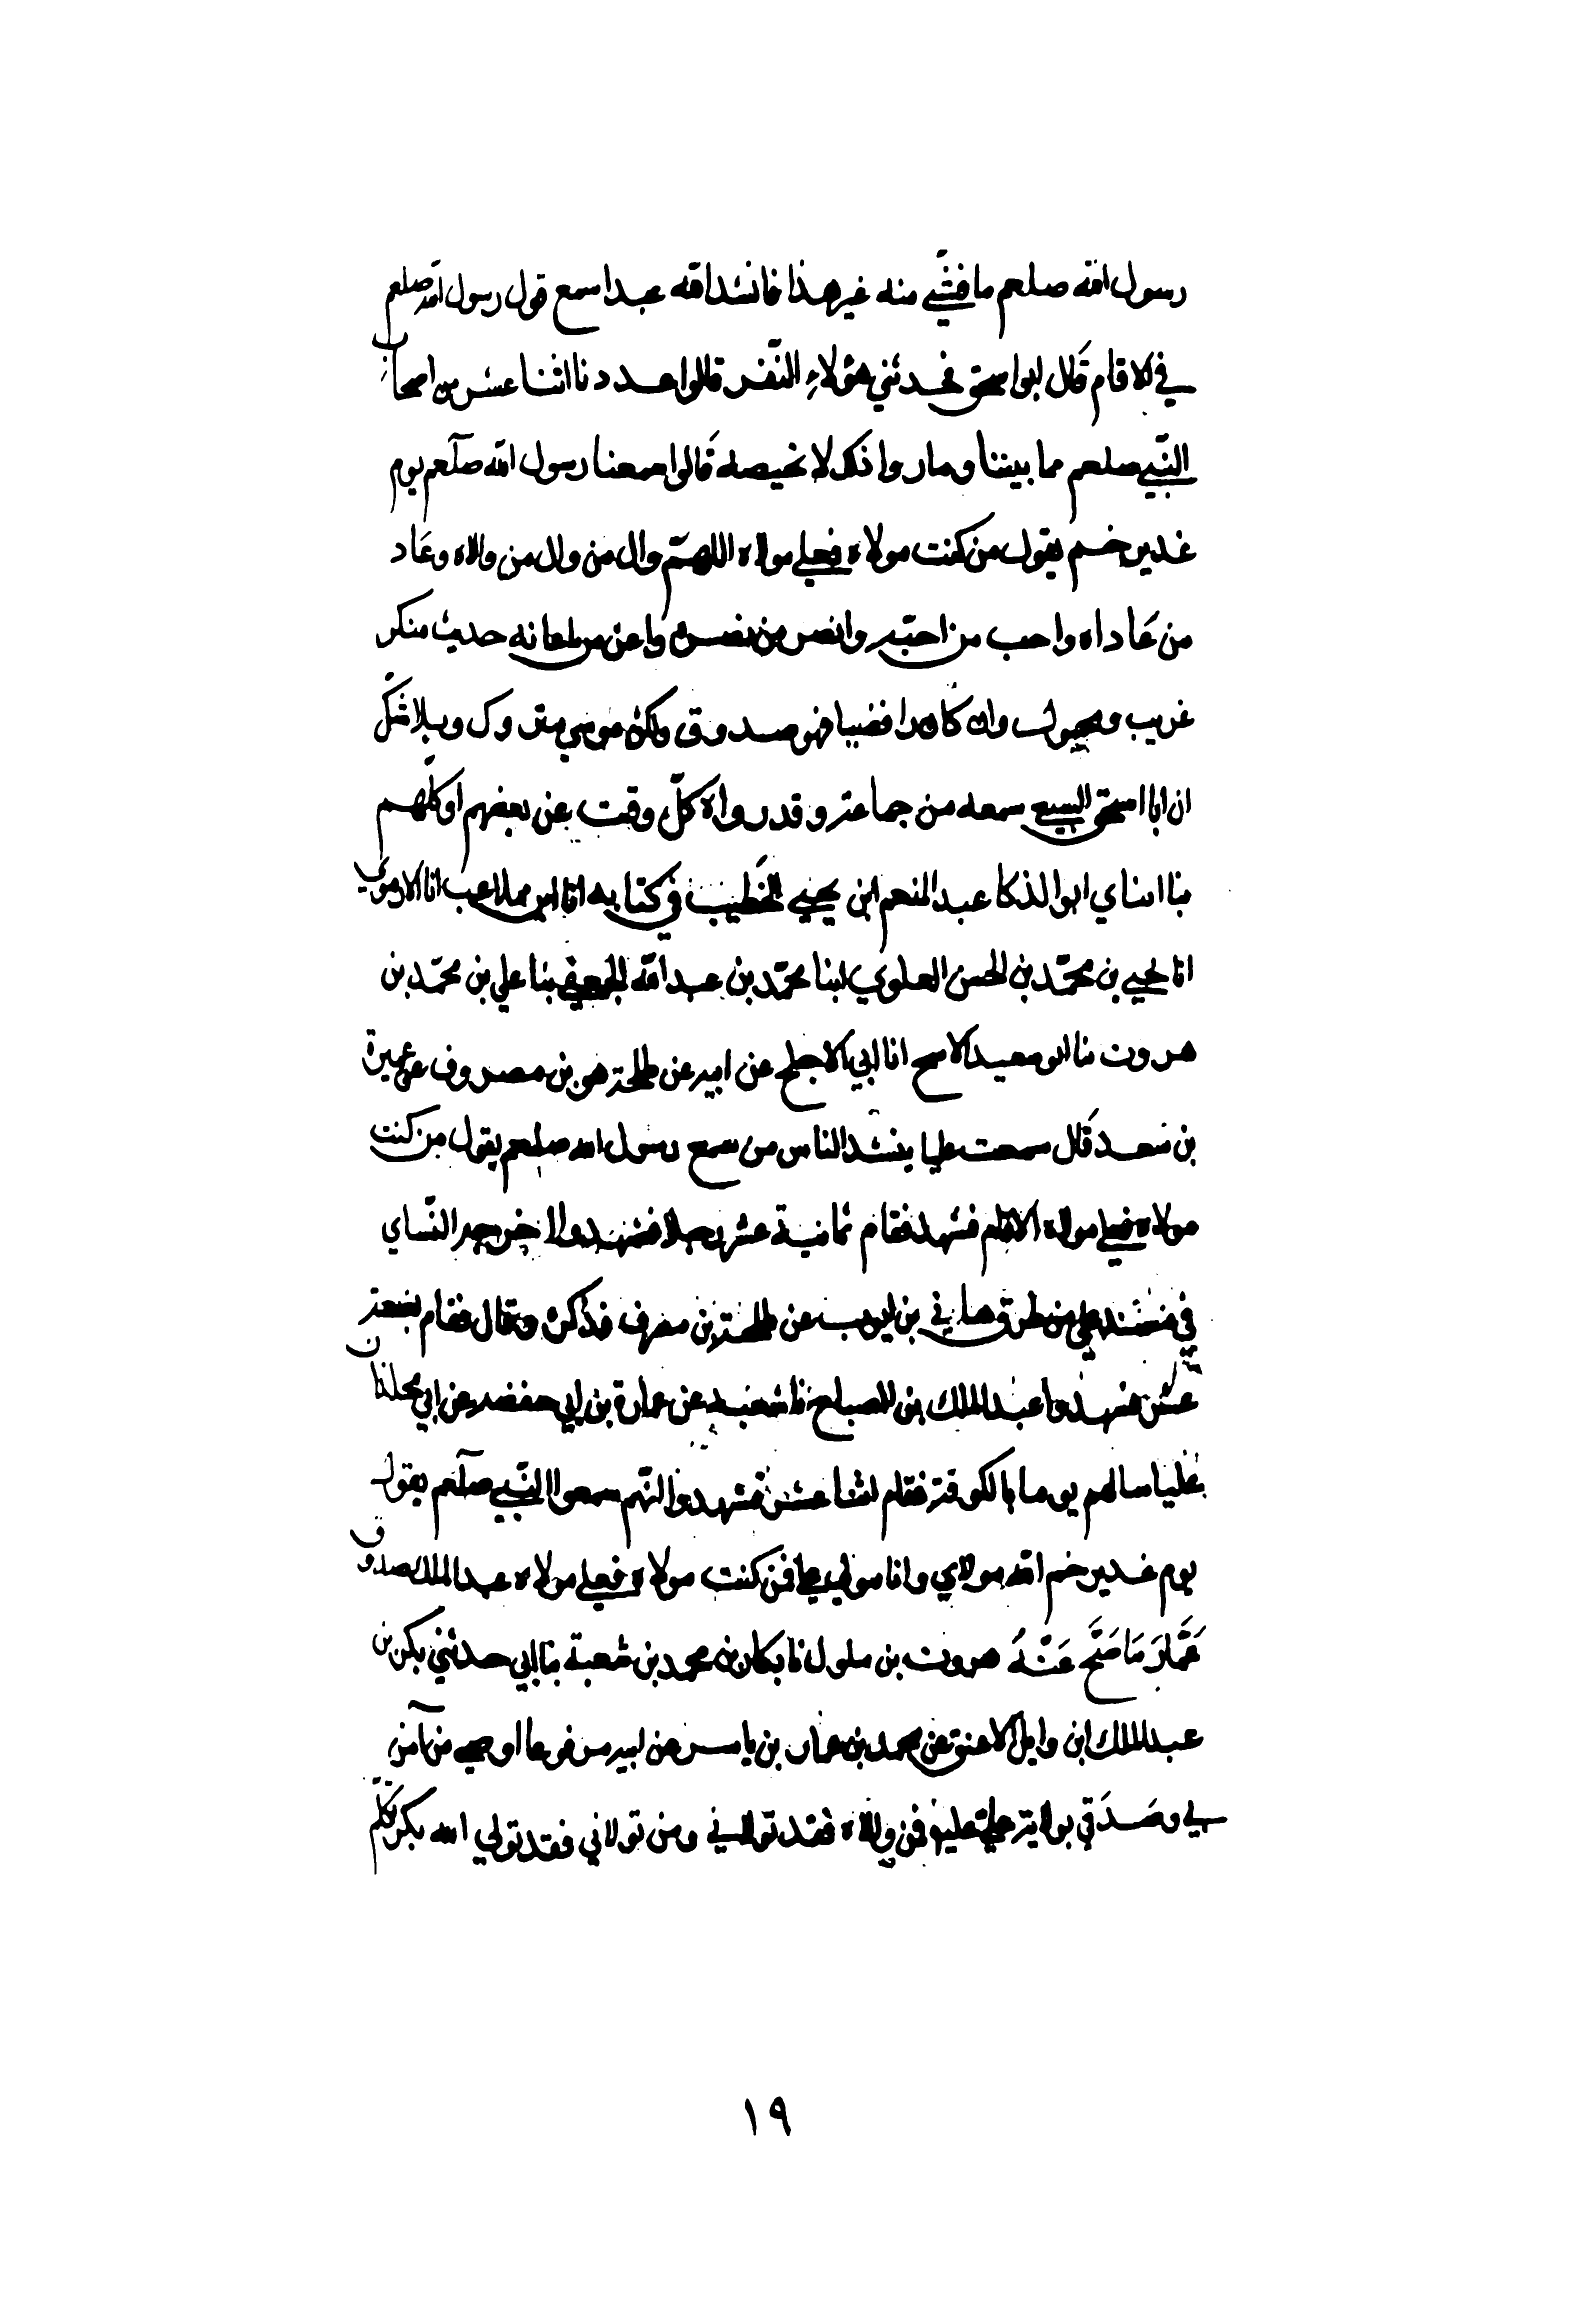 رسول الله صلعم ما فشي منه غير هذا فانشد الله عبدا سمع قول رسول الله صلعم
في الا قام قال ابوا سحق فحدثني هؤلاء النفر قالوا عددنا اثنا عشر من اصحاب
النبي صلعم مما بيننا وما روا ذلك لا نحيصله قالوا سمعنا رسول الله صلعم يوم
غدير خم يقول من كنت مولاه فعلي مولاه اللهم وال من وال من والاه وعاد
من عاداه واحب من احبه وانصر من نصره واعن من اعانه حديث منكر
غريب ومجهول وان كان رافضيا فهو صدوق ولكن موسي متروك وبلا شك
ان ابا اسحق السبيع سمعه من جماعة وقد رواه كل وقت عن بعضهم او كلهم
ابوا لذكا عبد المنعم ابن يحيي الخطيب في كتابه انا ابن ملاعب انا الارموي
انا يحيي بن محمد بن الحسن العلوي ابنا محمد بن عبد الله الجعفي بنا علي بن محمد بن
هروت نا ابو سعيد الاسح انا ابي الاجلح عن ابيه عن طلحة هو بن مصروف عن عميرة
بن سعد قال سمعت عليا ينشد الناس من سمع رسول الله صلعم يقول من كنت
مولاه فعلي مولاه الا قام فشهد فقام ثمانية عشر رجلا فشهدوا اخرجه النساي
في مسند علي من طرق هاني بن ايوب عن طلحة بن مصرف فذكره وقال فقام بضعة
عشر فشهدوا عبد الملك بن الصباح نا شعبه عن عمارة بن ابي حفصه عن ابي مجلذ ان
عليا سالهم يوما بالكوفة فقام اثنا عشر فشهدوا انهم سمعوا النبي صلعم يقول
يوم غدير خم الله مولاي وانا مولي علي فمن كنت مولاه فعلي مولاه عبد الملك صدوق
عمار ما صح عنه هروت بن سلول نا بكار بن محمد بن شعبة نا ابي حدثني بكر بن
عبد الملك ابن وايل الاعنق عن محمد بن عمار بن ياسر عن ابيه مرفوعا اوصي من آمن
بي وصدقي بولاية علي فمن والاه فقد تولاني ومن تولاني فقد تولي الله بكر تكلم
١٩